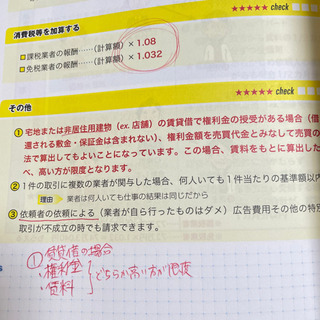 ★★★★★ check
消費税等を加算する
■課税業者の報酬……(計算額)×1.08
■免税業者の報酬……(計算額)×1.032
★★★★★ check
その他
① 宅地または非居住用建物(ex. 店舗)の賃貸借で権利金の授受がある場合(借
還される敷金・保証金は含まれない)、権利金額を売買代金とみなして売買の
法で算出してもよいことになっています。この場合、賃料をもとに算出した
べ、高い方が限度となります。
② 1件の取引に複数の業者が関与した場合、何人いても1件当たりの基準額以内
理由 業者は何人いても仕事の結果は同じだから
③ 依頼者の依頼による(業者が自ら行ったものはダメ)広告費用その他の特別
取引が不成立の時でも請求できます。
①賃貸借の場合
・権利金
・賃料
どちらか高い方が限度